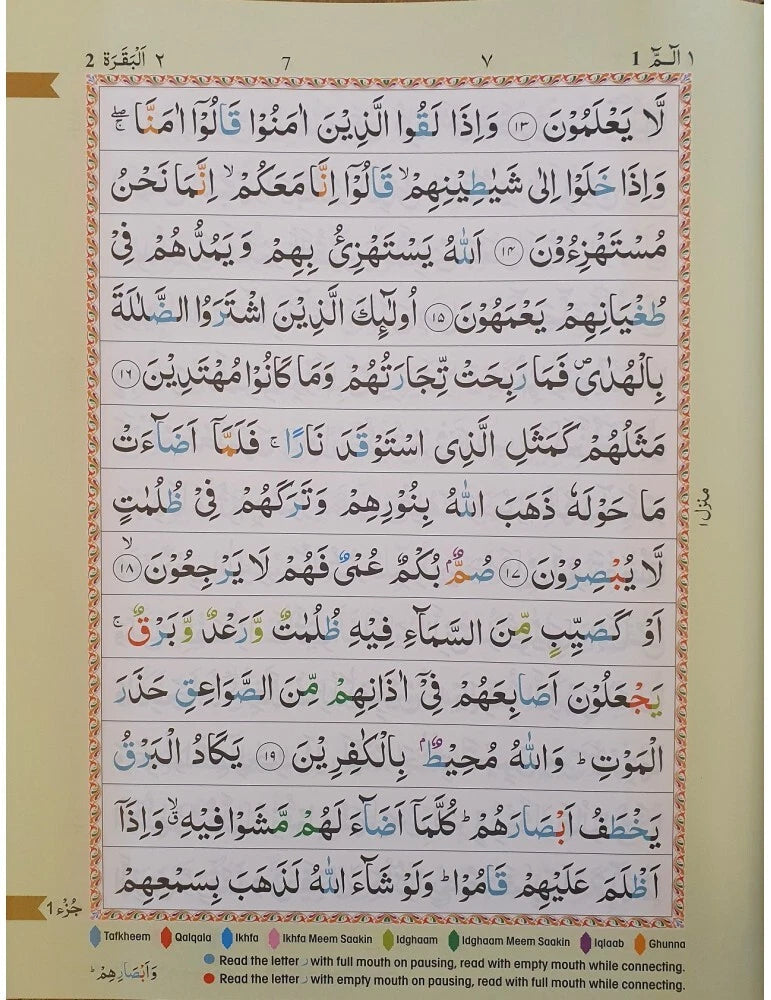 ١ الٓمّٓ 1 ٧ 7 ٢ اَلْبَقَرَة 2
لَّا يَعْلَمُوْنَ ﴿١٣﴾ وَاِذَا لَقُوا الَّذِيْنَ اٰمَنُوْا قَالُوْٓا اٰمَنَّا ۖۚ
وَاِذَا خَلَوْا اِلٰى شَيٰطِيْنِهِمْ ۙ قَالُوْٓا اِنَّا مَعَكُمْ ۙ اِنَّمَا نَحْنُ
مُسْتَهْزِءُوْنَ ﴿١٤﴾ اَللّٰهُ يَسْتَهْزِئُ بِهِمْ وَيَمُدُّهُمْ فِيْ
طُغْيَانِهِمْ يَعْمَهُوْنَ ﴿١٥﴾ اُولٰٓئِكَ الَّذِيْنَ اشْتَرَوُا الضَّلٰلَةَ
بِالْهُدٰى ۪ فَمَا رَبِحَتْ تِّجَارَتُهُمْ وَمَا كَانُوْا مُهْتَدِيْنَ ﴿١٦﴾
مَثَلُهُمْ كَمَثَلِ الَّذِى اسْتَوْقَدَ نَارًا ۚ فَلَمَّآ اَضَآءَتْ
مَا حَوْلَهٗ ذَهَبَ اللّٰهُ بِنُوْرِهِمْ وَتَرَكَهُمْ فِيْ ظُلُمٰتٍ
لَّا يُبْصِرُوْنَ ﴿١٧﴾ صُمٌّۢ بُكْمٌ عُمْيٌ فَهُمْ لَا يَرْجِعُوْنَ ۙ ﴿١٨﴾
اَوْ كَصَيِّبٍ مِّنَ السَّمَآءِ فِيْهِ ظُلُمٰتٌ وَّرَعْدٌ وَّبَرْقٌ ۚ
يَجْعَلُوْنَ اَصَابِعَهُمْ فِيْٓ اٰذَانِهِمْ مِّنَ الصَّوَاعِقِ حَذَرَ
الْمَوْتِ ؕ وَاللّٰهُ مُحِيْطٌۢ بِالْكٰفِرِيْنَ ﴿١٩﴾ يَكَادُ الْبَرْقُ
يَخْطَفُ اَبْصَارَهُمْ ؕ كُلَّمَآ اَضَآءَ لَهُمْ مَّشَوْا فِيْهِ ۙۗ وَاِذَآ
اَظْلَمَ عَلَيْهِمْ قَامُوْا ؕ وَلَوْ شَآءَ اللّٰهُ لَذَهَبَ بِسَمْعِهِمْ
منزل ١
جُزْء 1
Tafkheem Qalqala Ikhfa Ikhfa Meem Saakin Idghaam Idghaam Meem Saakin Iqlaab Ghunna
Read the letter ر with full mouth on pausing, read with empty mouth while connecting.
Read the letter ر with empty mouth on pausing, read with full mouth while connecting.
وَاَبْصَارِهِمْ ؕ